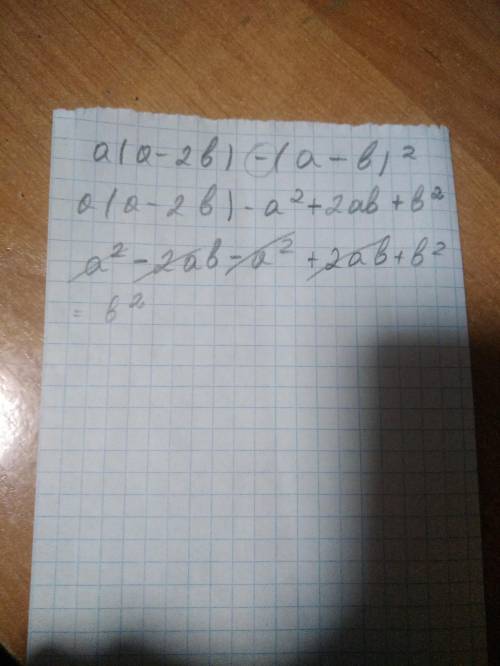 a(a-2b)-(a-b)²
a(a-2b)-a²+2ab+b²
a²-2ab-a²+2ab+b²
= b²